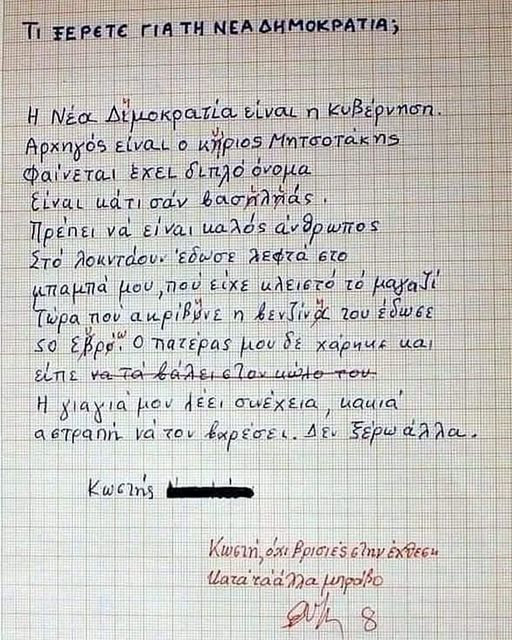 ΤΙ ΞΕΡΕΤΕ ΓΙΑ ΤΗ ΝΕΑ ΔΗΜΟΚΡΑΤΙΑ;
Η Νέα Δημοκρατία είναι η κυβέρνηση.
Αρχηγός είναι ο κήριος Μητσοτάκης
Φαίνεται έχει διπλό όνομα
Είναι κάτι σάν βασηληάς.
Πρέπει νά είναι καλός άνθρωπος
Στό λοκντάουν έδωσε λεφτά στο
μπαμπά μου, πού είχε κλειστό τό μαγαζί
Τώρα που ακρίβυνε η βενζίνα του έδωσε
50 εβρό. Ο πατέρας μου δε χάρηκε και
είπε να τά βάλει στον κώλο του
Η γιαγιά μου λέει συνέχεια, κακιά
αστραπή νά τον βαρέσει. Δεν ξέρω άλλα.
Κωστής
Κωστή, όχι βρισιές στην έκθεση
Κατά τα άλλα μπράβο
8